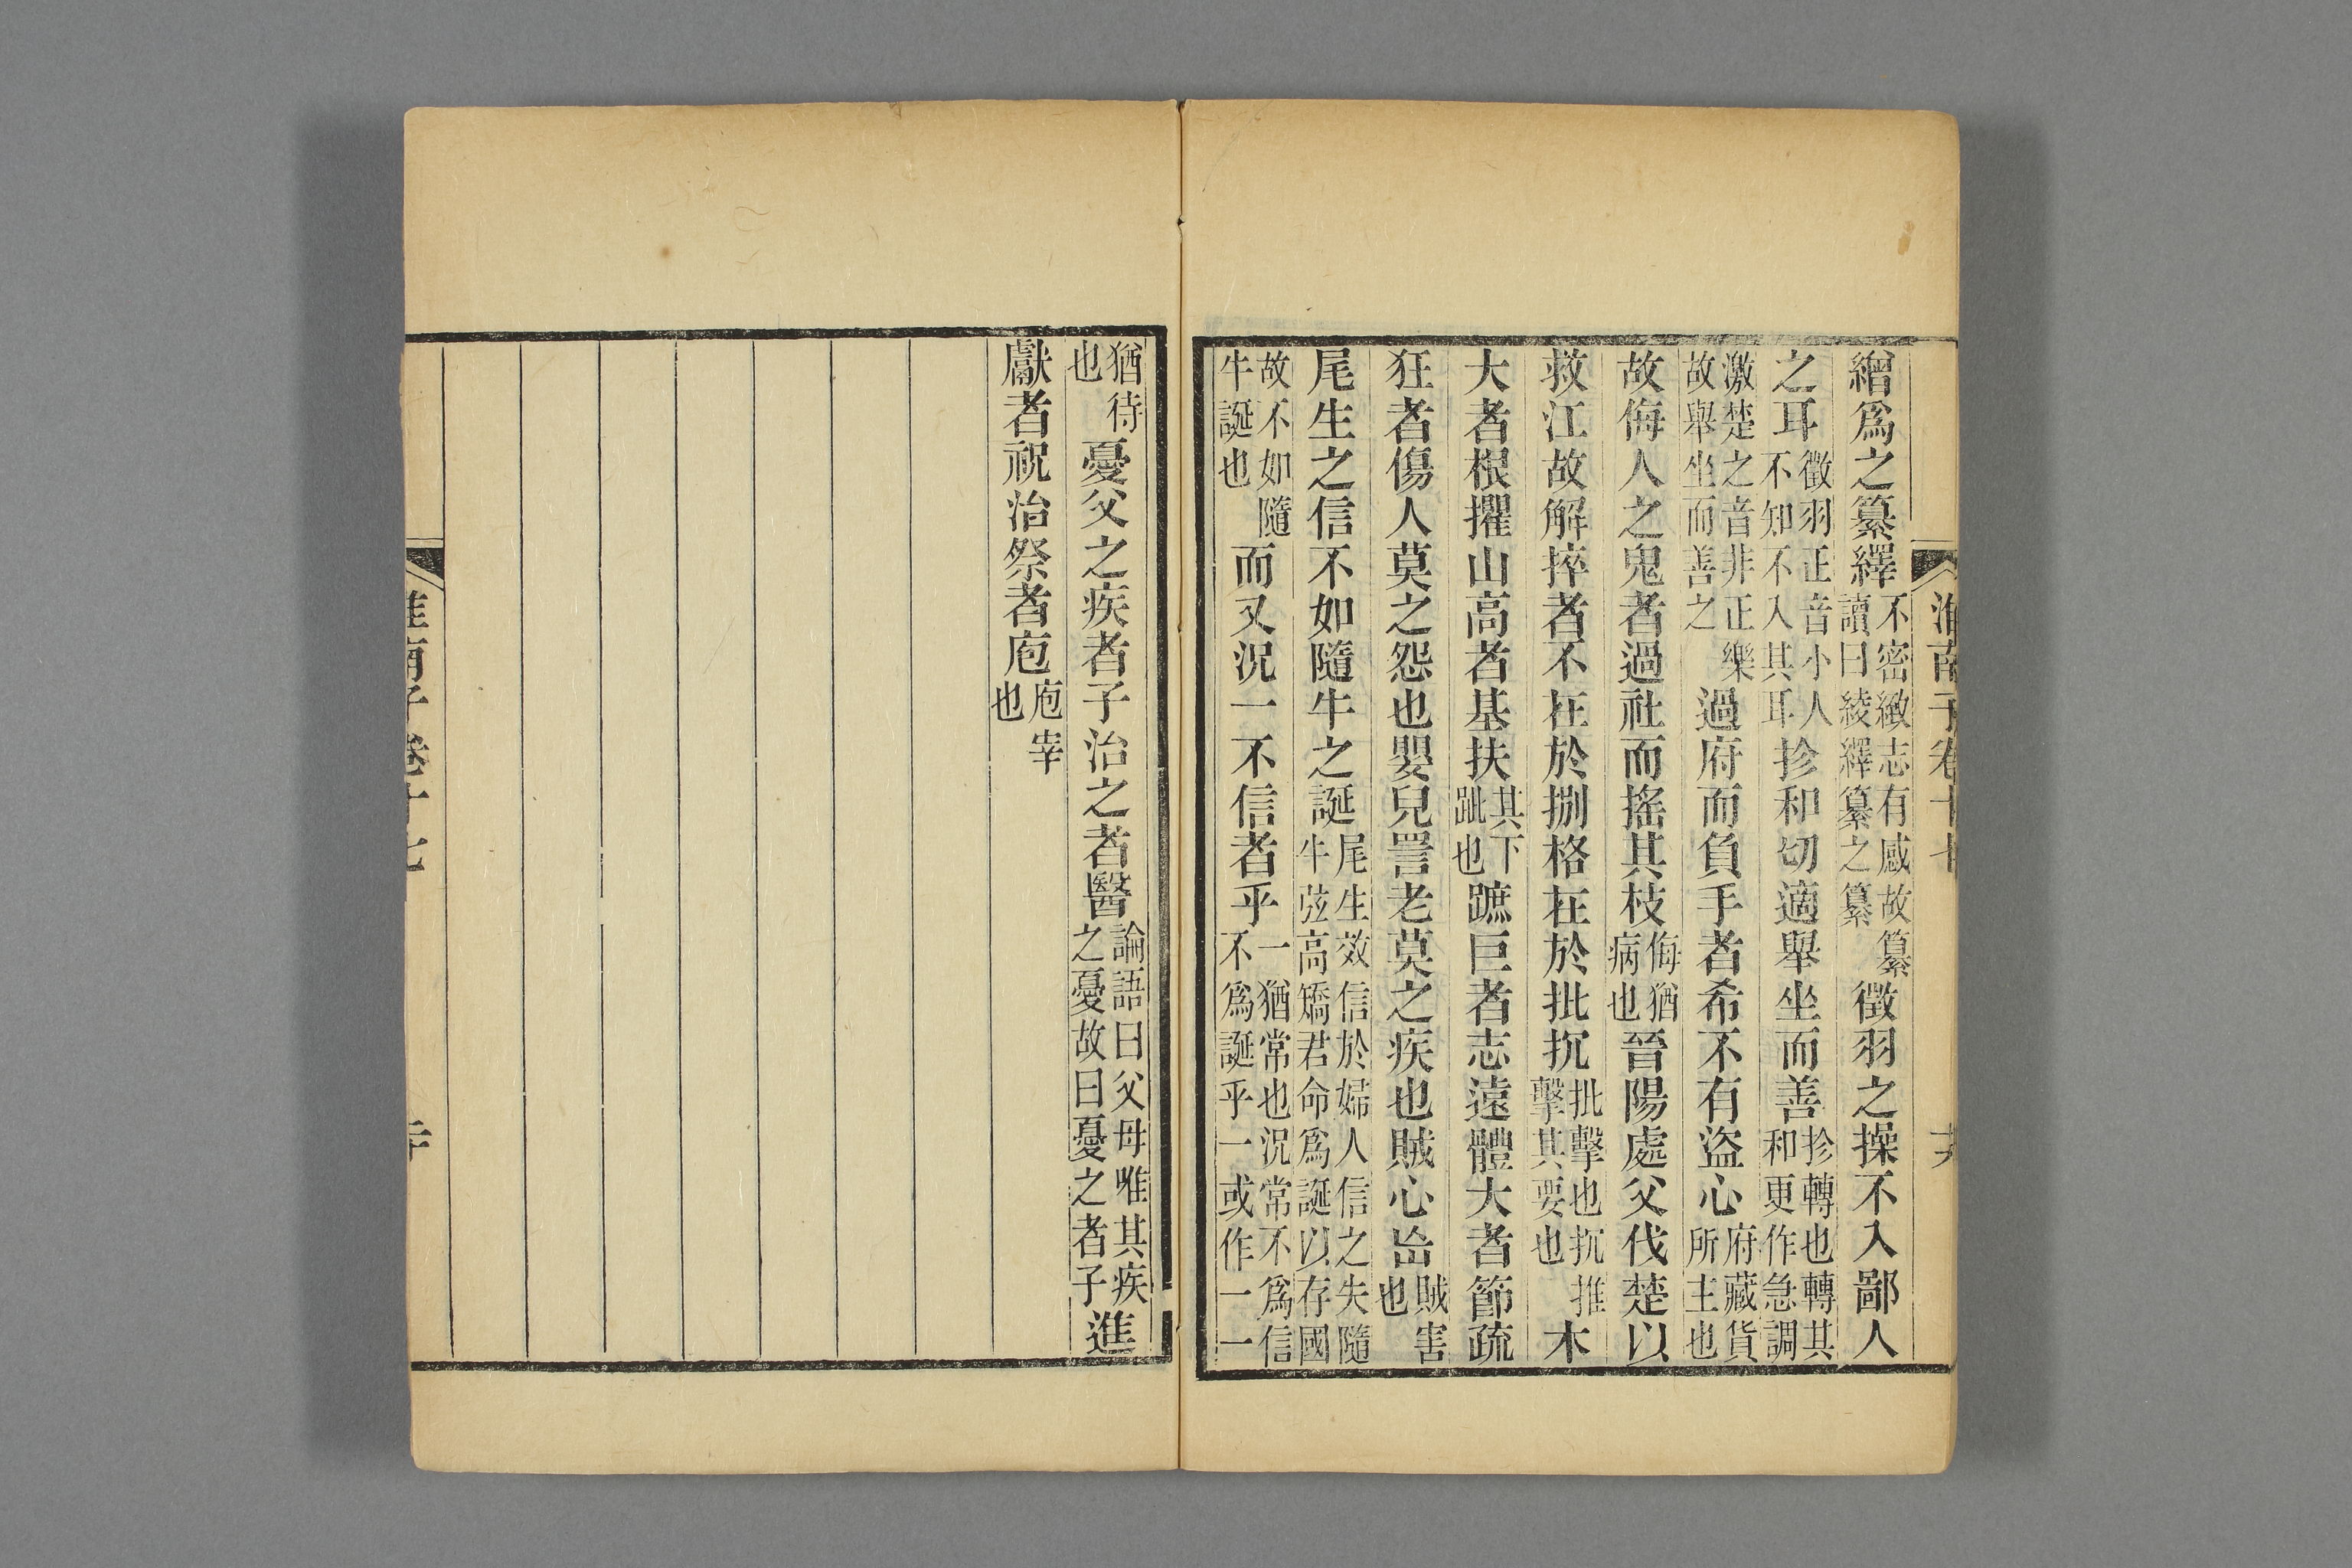 淮南子卷十七
繒爲之纂繹不密緻志有感故纂讀曰綾繹纂之纂徵羽之操不入鄙人
之耳徵羽正音小人不知不入其耳抮和切適舉坐而善抮轉也轉其和更作急調
激楚之音非正樂故舉坐而善之過府而負手者希不有盜心府藏貨所主也
故侮人之鬼者過社而搖其枝侮猶病也晉陽處父伐楚以
救江故解捽者不在於捌格在於批扻批擊也扻推擊其要也木
大者根擢山高者基扶其下趾也蹠巨者志遠體大者節疏
狂者傷人莫之怨也嬰兒詈老莫之疾也賊心㟇賊害也
尾生之信不如隨牛之誕尾生效信於婦人信之失隨牛弦高矯君命爲誕以存國
故不如隨牛誕也而又況一不信者乎一猶常也況常不爲信不爲誕乎一或作一一
猶待也憂父之疾者子治之者醫論語曰父母唯其疾之憂故曰憂之者子進
獻者祝治祭者庖庖宰也
淮南子卷十七